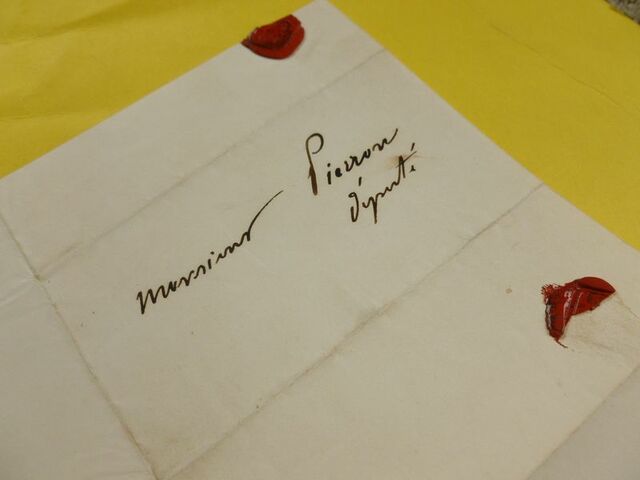 Monsieur Pierron
député